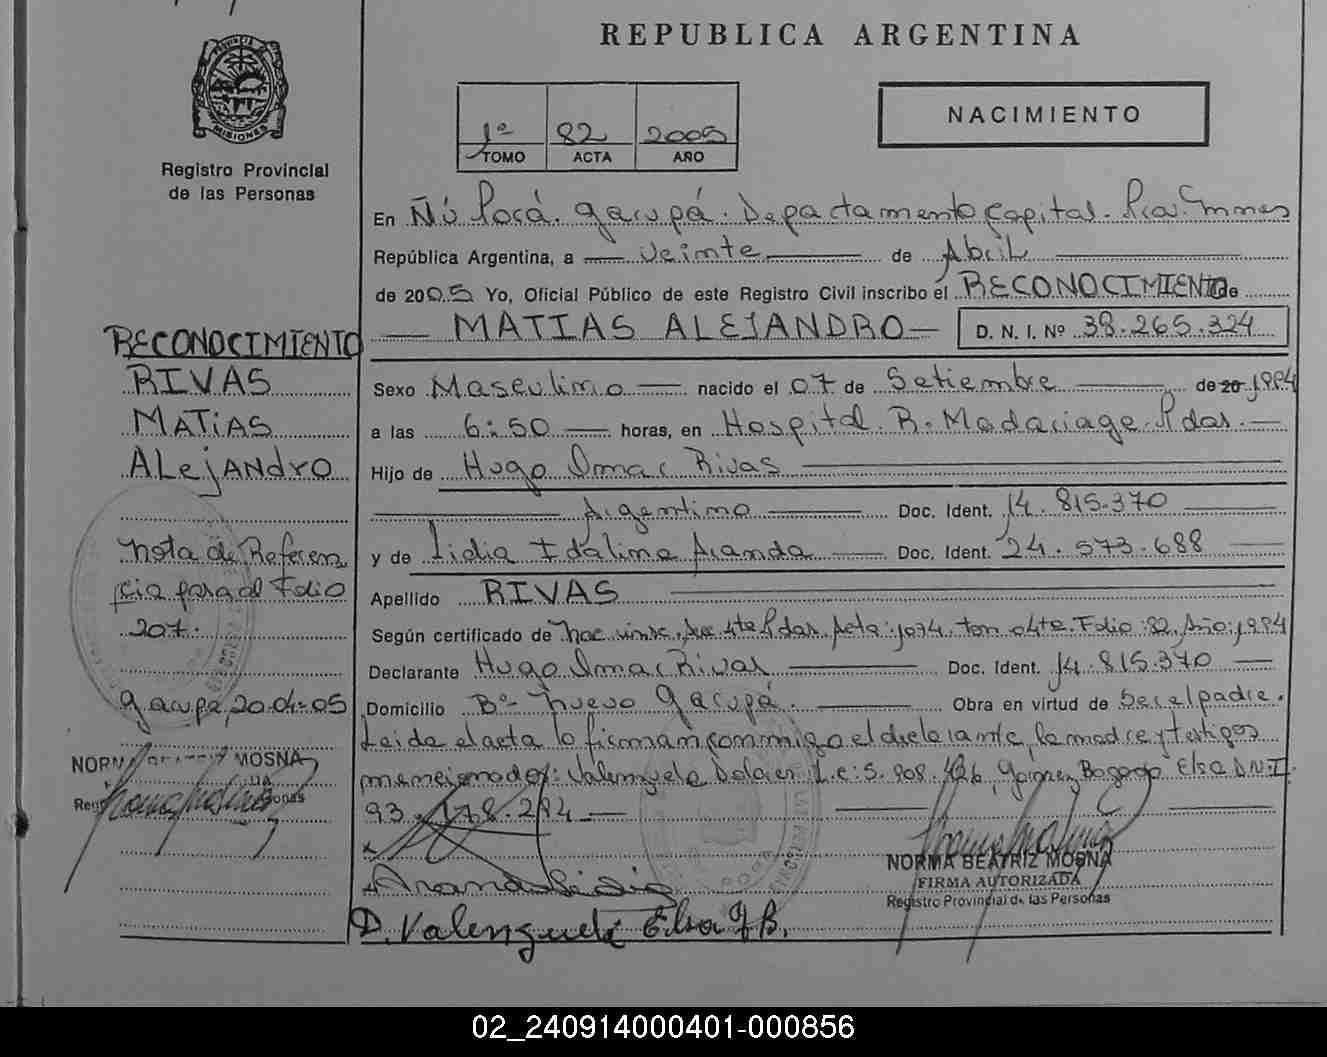 REPUBLICA ARGENTINA
PROVINCIA DE
MISIONES
Registro Provincial
de las Personas
1º 82 2005
TOMO ACTA AÑO
NACIMIENTO
En Ñú Porá. Garupá. Departamento Capital. Pcia.
República Argentina, a veinte de Abril
de 2005 Yo, Oficial Público de este Registro Civil inscribo el RECONOCIMIENTO de
MATIAS ALEJANDRO D. N. I. Nº 38.265.324
RECONOCIMIENTO
RIVAS
MATIAS
ALejANDRO
Nota de Referen
cia para al Folio
207.
Garupá, 20-04-05
NORMA MOSNA
Sexo Masculino nacido el 07 de Setiembre de 20 1994
a las 6:50 horas, en Hospital R. Madariaga Pdas.
Hijo de Hugo Omar Rivas
Argentino Doc. Ident. 14.815.370
y de Lidia Idalina Aranda Doc. Ident. 24.573.688
Apellido RIVAS
Según certificado de nac. insc. Sec 4ta Pdas. Acta: 1074. tom 04to. Folio: 82. Año: 1994
Declarante Hugo Omar Rivas Doc. Ident. 14.815.370
Domicilio Bº Nuevo Garupá. Obra en virtud de Ser el padre.
Leida el acta lo firman conmigo el declarante, la madre y testigos
mencionados: Valenzuela Dolores L.e: 5.908.426, Bogego Elsa D.N.I
93.178.294
Aranda Lidia
D. Valenzuela Elsa G B.
NORMA BEATRIZ MOSNA
FIRMA AUTORIZADA
Registro Provincial de las Personas
02_240914000401-000856